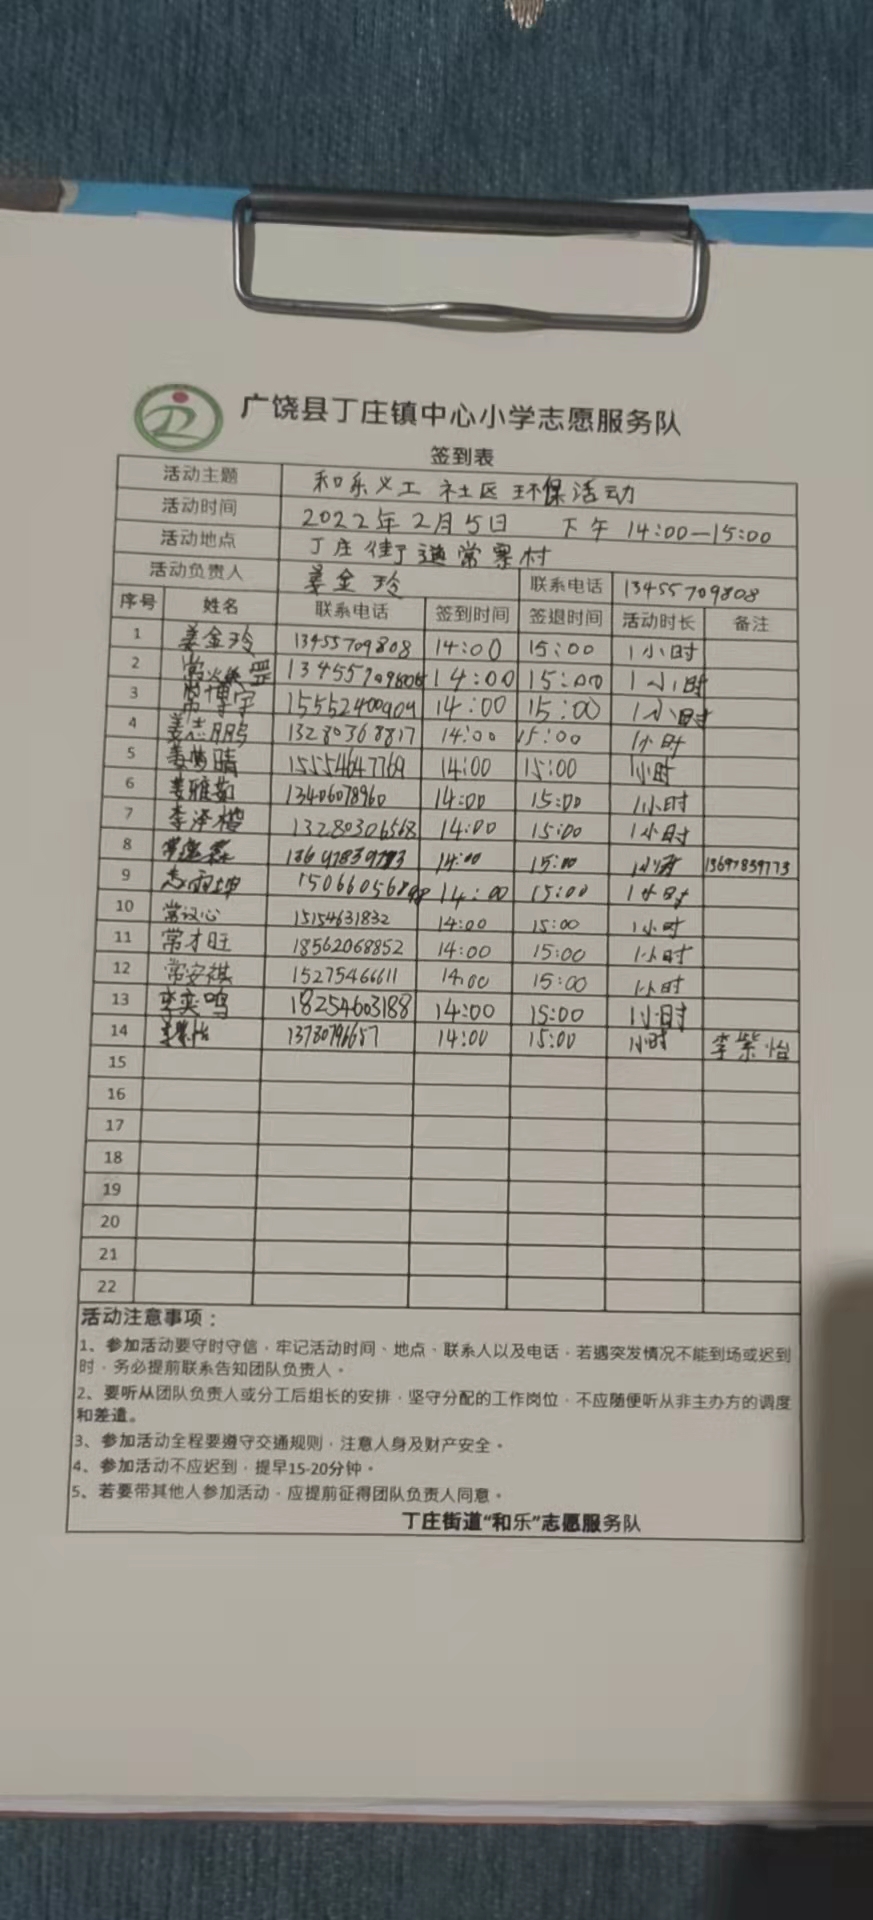 广饶县丁庄镇中心小学志愿服务队
签到表
活动主题 和乐义工 社区 环保活动
活动时间 2022年2月5日 下午 14:00—15:00
活动地点 丁庄街道常寨村
活动负责人 姜金玲 联系电话 13455709808
序号 姓名 联系电话 签到时间 签退时间 活动时长 备注
1 姜金玲 13455709808 14:00 15:00 1小时
2 14:00 15:00 1小时
3 常博宇 15552400909 14:00 15:00 1小时
4 姜志鹏 13280368817 14:00 15:00 1小时
5 姜梦晴 15554647769 14:00 15:00 1小时
6 姜雅茹 13406078960 14:00 15:00 1小时
7 李泽楷 13280306568 14:00 15:00 1小时
8 14:00 15:00 1小时 13697859773
9 14:00 15:00 1小时
10 15154631832 14:00 15:00 1小时
11 常才旺 18562068852 14:00 15:00 1小时
12 常安祺 15275466611 14:00 15:00 1小时
13 李奕鸣 18254603188 14:00 15:00 1小时
14 李紫怡 13780796657 14:00 15:00 1小时 李紫怡
15
16
17
18
19
20
21
22
活动注意事项：
1、参加活动要守时守信，牢记活动时间、地点、联系人以及电话，若遇突发情况不能到场或迟到
时，务必提前联系告知团队负责人。
2、要听从团队负责人或分工后组长的安排，坚守分配的工作岗位，不应随便听从非主办方的调度
和差遣。
3、参加活动全程要遵守交通规则，注意人身及财产安全。
4、参加活动不应迟到，提早15-20分钟。
5、若要带其他人参加活动，应提前征得团队负责人同意。
丁庄街道“和乐”志愿服务队